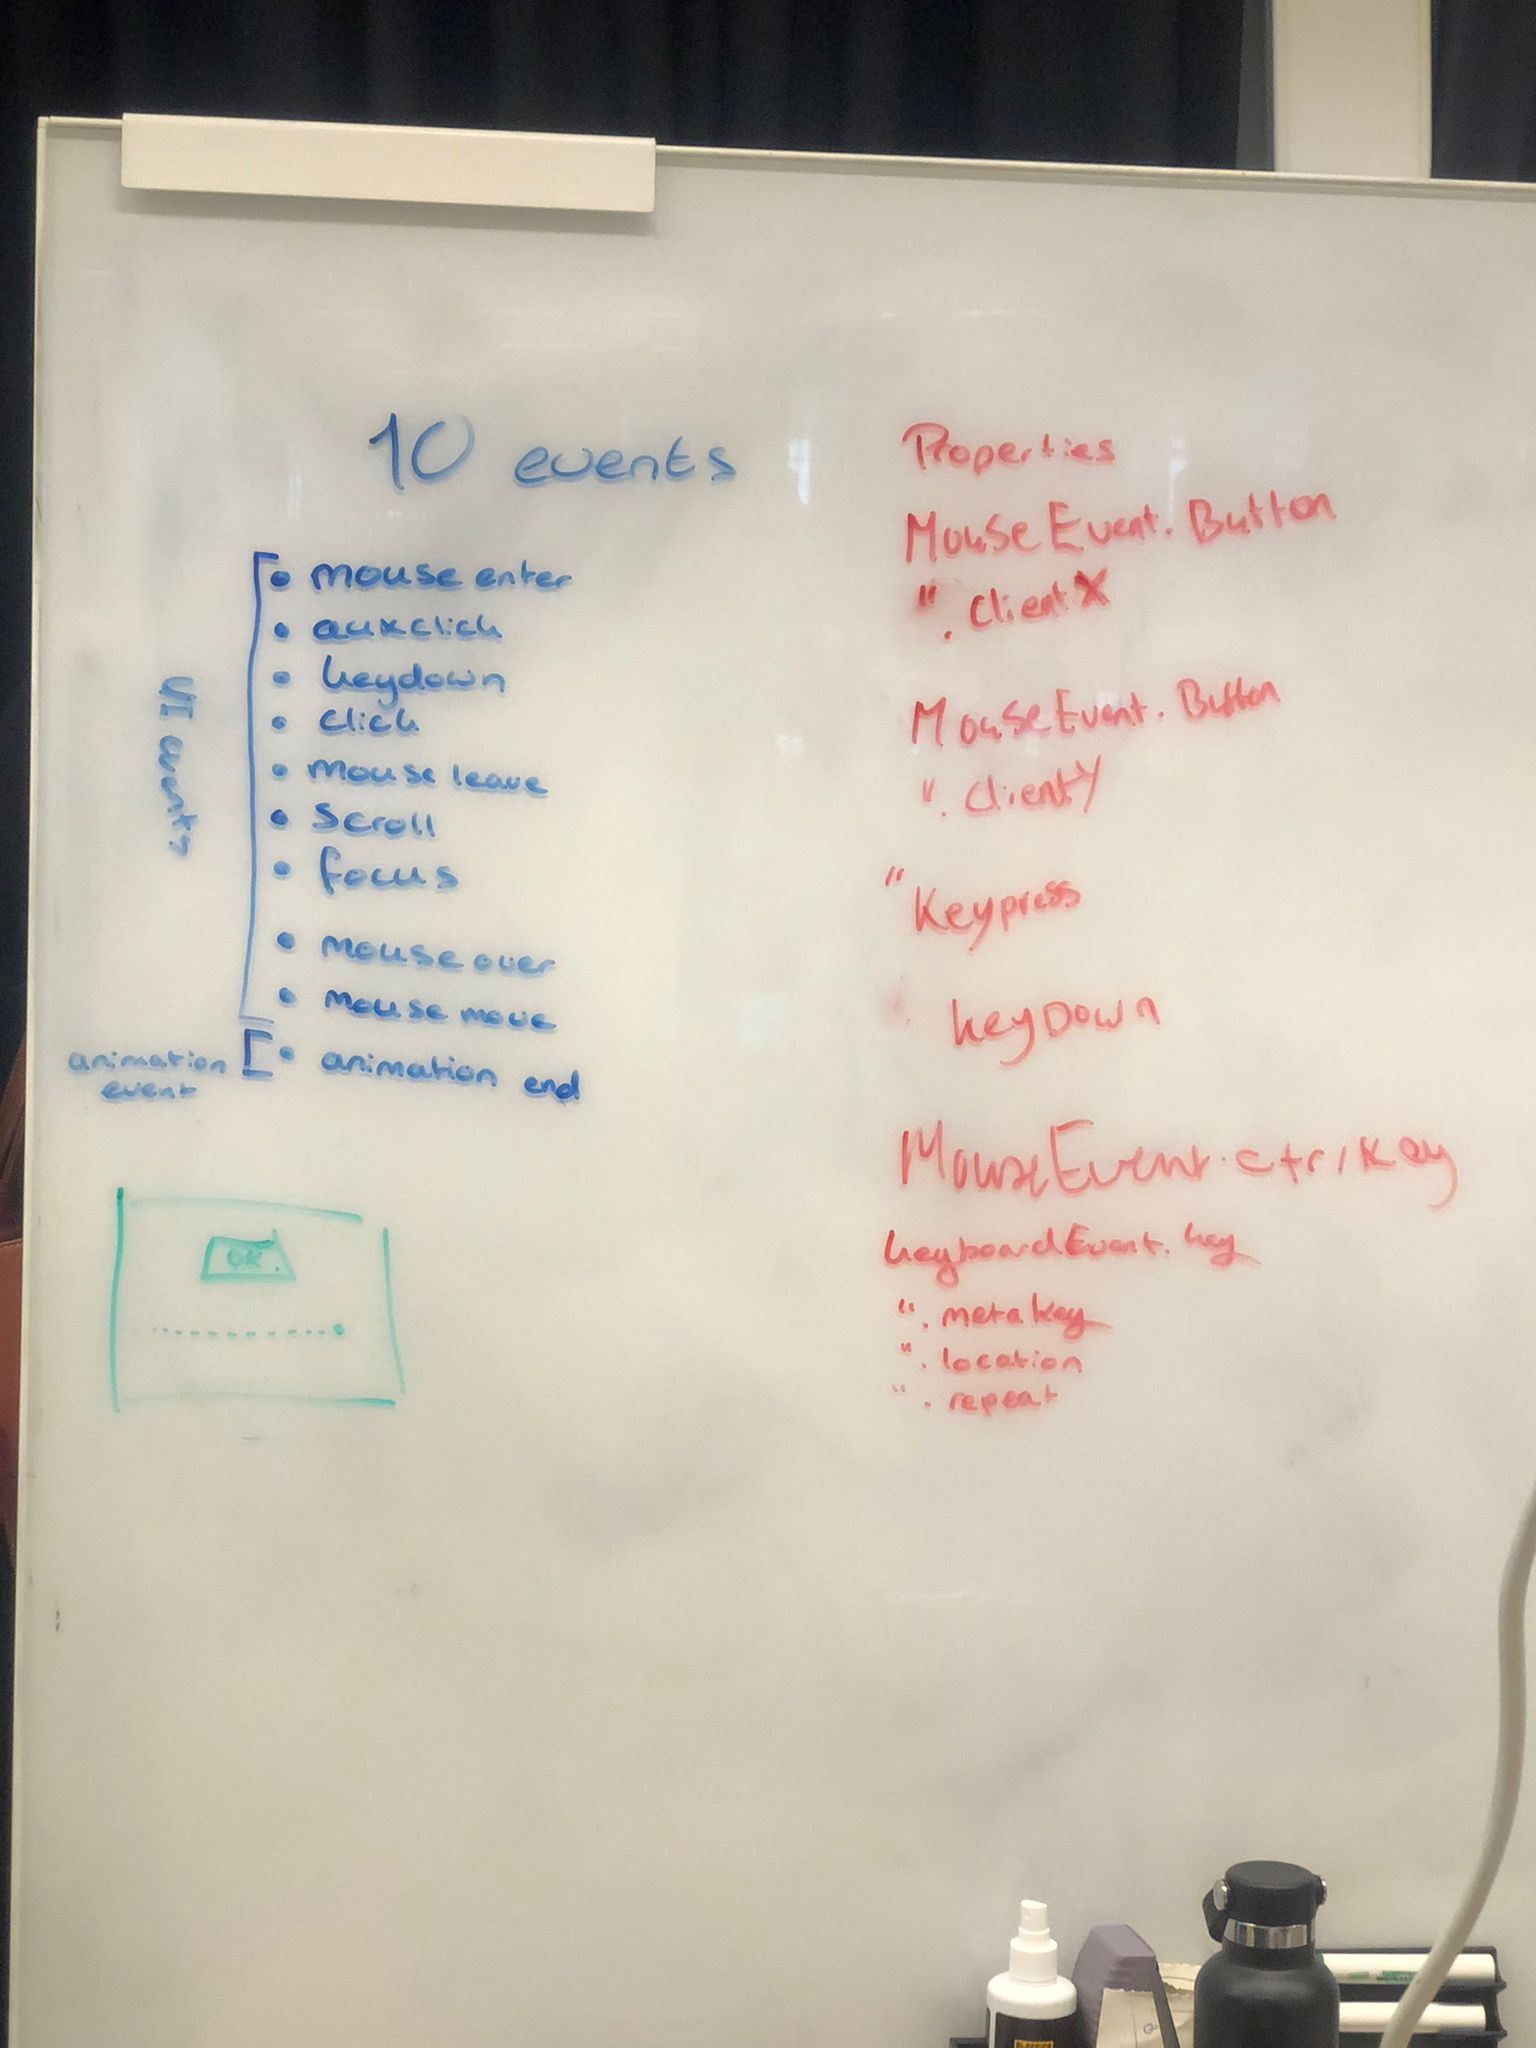 10 events
• mouse enter
• auxclick
• keydown
• click
• mouse leave
• scroll
• focus
• mouse over
• mouse move
• animation end
UI events
animation
event
OK
Properties
MouseEvent.Button
". ClientX
MouseEvent.Button
". ClientY
" Keypress
keyDown
MouseEvent.ctrlKey
keyboardEvent.key
". metakey
". location
". repeat